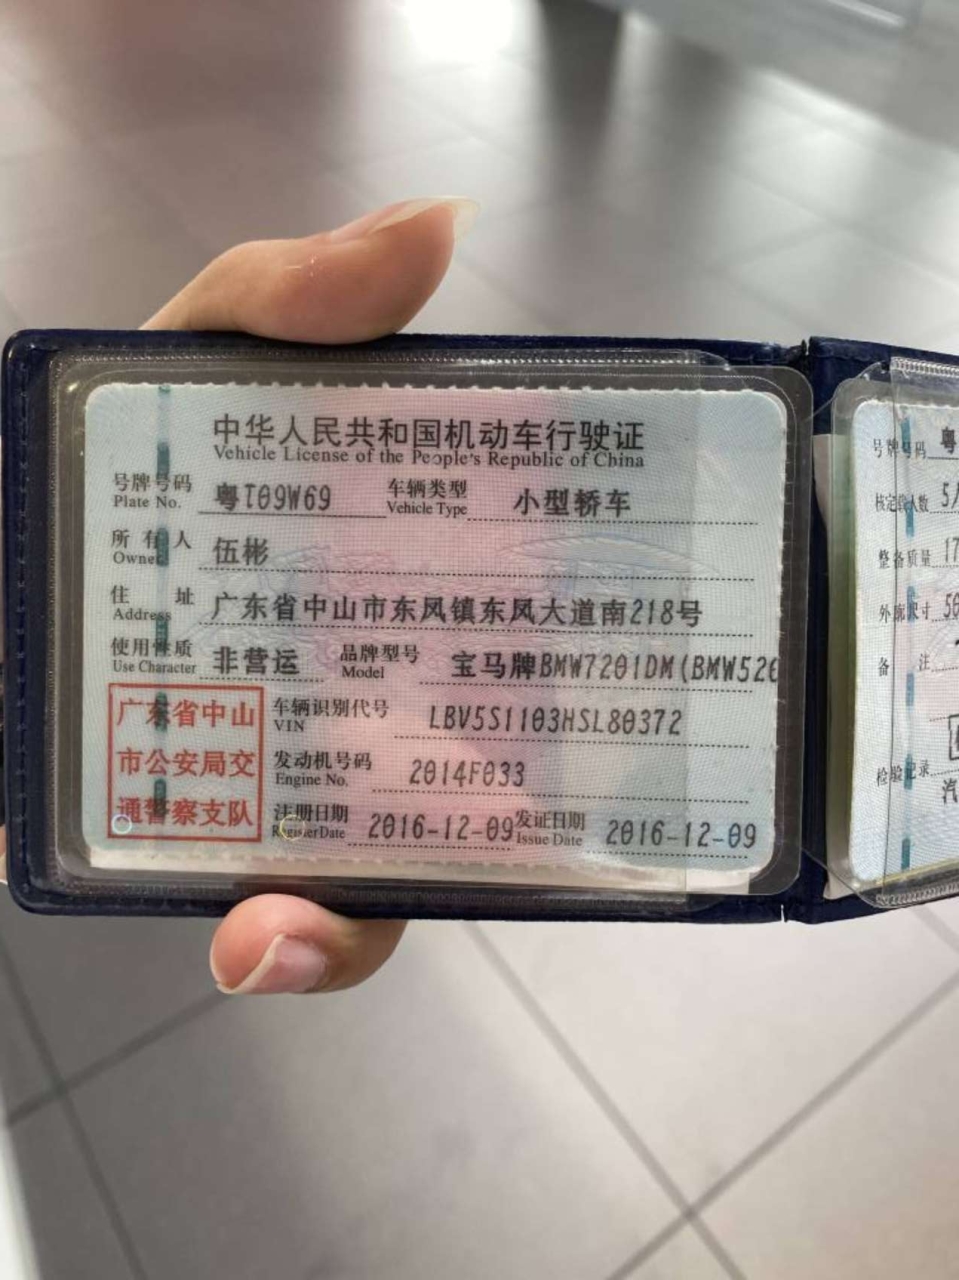 中华人民共和国机动车行驶证
Vehicle License of the People's Republic of China
号牌号码 粤T09W69 车辆类型 小型轿车
Plate No. Vehicle Type
所有人 伍彬
Owner
住址 广东省中山市东凤镇东凤大道南218号
Address
使用性质 非营运 品牌型号 宝马牌BMW7201DM(BMW526
Use Character Model
广东省中山
市公安局交
通警察支队
车辆识别代号 LBV5S1103HSL80372
VIN
发动机号码 2014F033
Engine No.
注册日期 2016-12-09 发证日期 2016-12-09
Register Date Issue Date
号牌号码 粤
核定载人数 5/
整备质量 17
外廓尺寸 50
备注
检验记录
汽